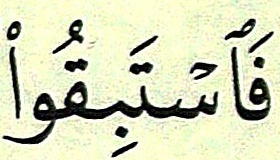 فَٱسْتَبِقُوا۟